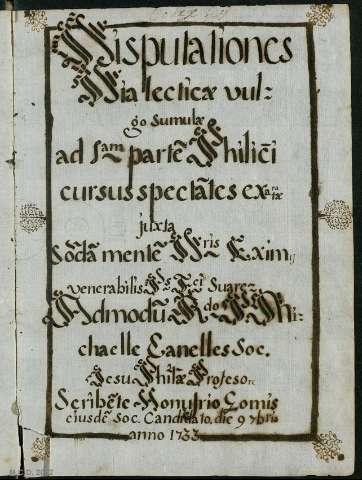 Disputationes
Dialecticæ vul-
go sumulæ
ad 1am partē Philici
cursus spectātes exaratæ
juxta
Sōctā mentē Dris Eximij
venerabilis Ps Fci Suarez
Admodū Rdo P Mi-
chaelle Canelles Soc.
Jesu Philæ Profesore
Scribēte Honufrio Comis
eiusdē Soc. Candidato, die 9 7bris
anno 1733